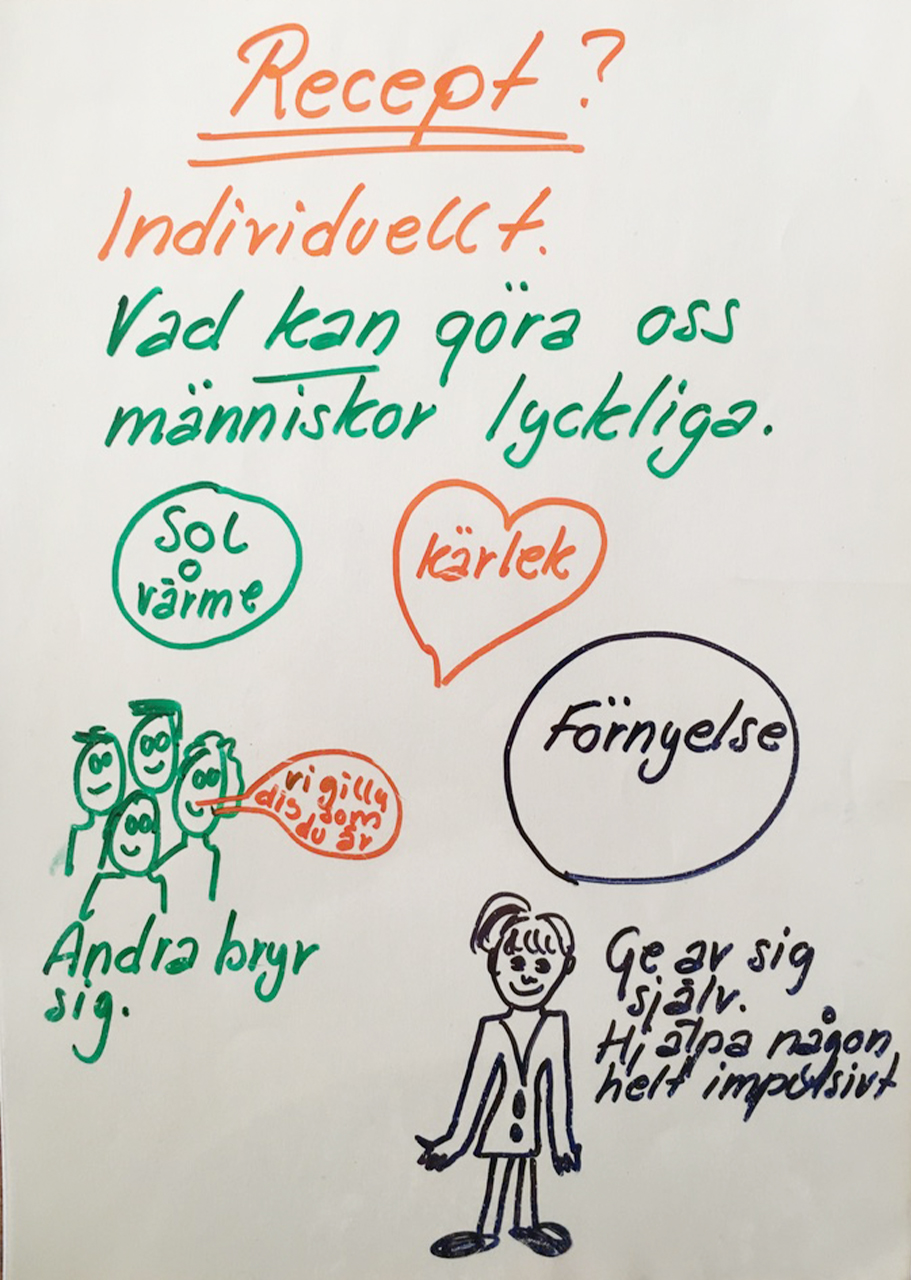 Recept?
Individuellt.
Vad kan göra oss
människor lyckliga.
Sol
o
värme
kärlek
Förnyelse
vi gilla
dig som
du är
Andra bryr
sig.
Ge av sig
själv.
Hjälpa någon
helt impulsivt